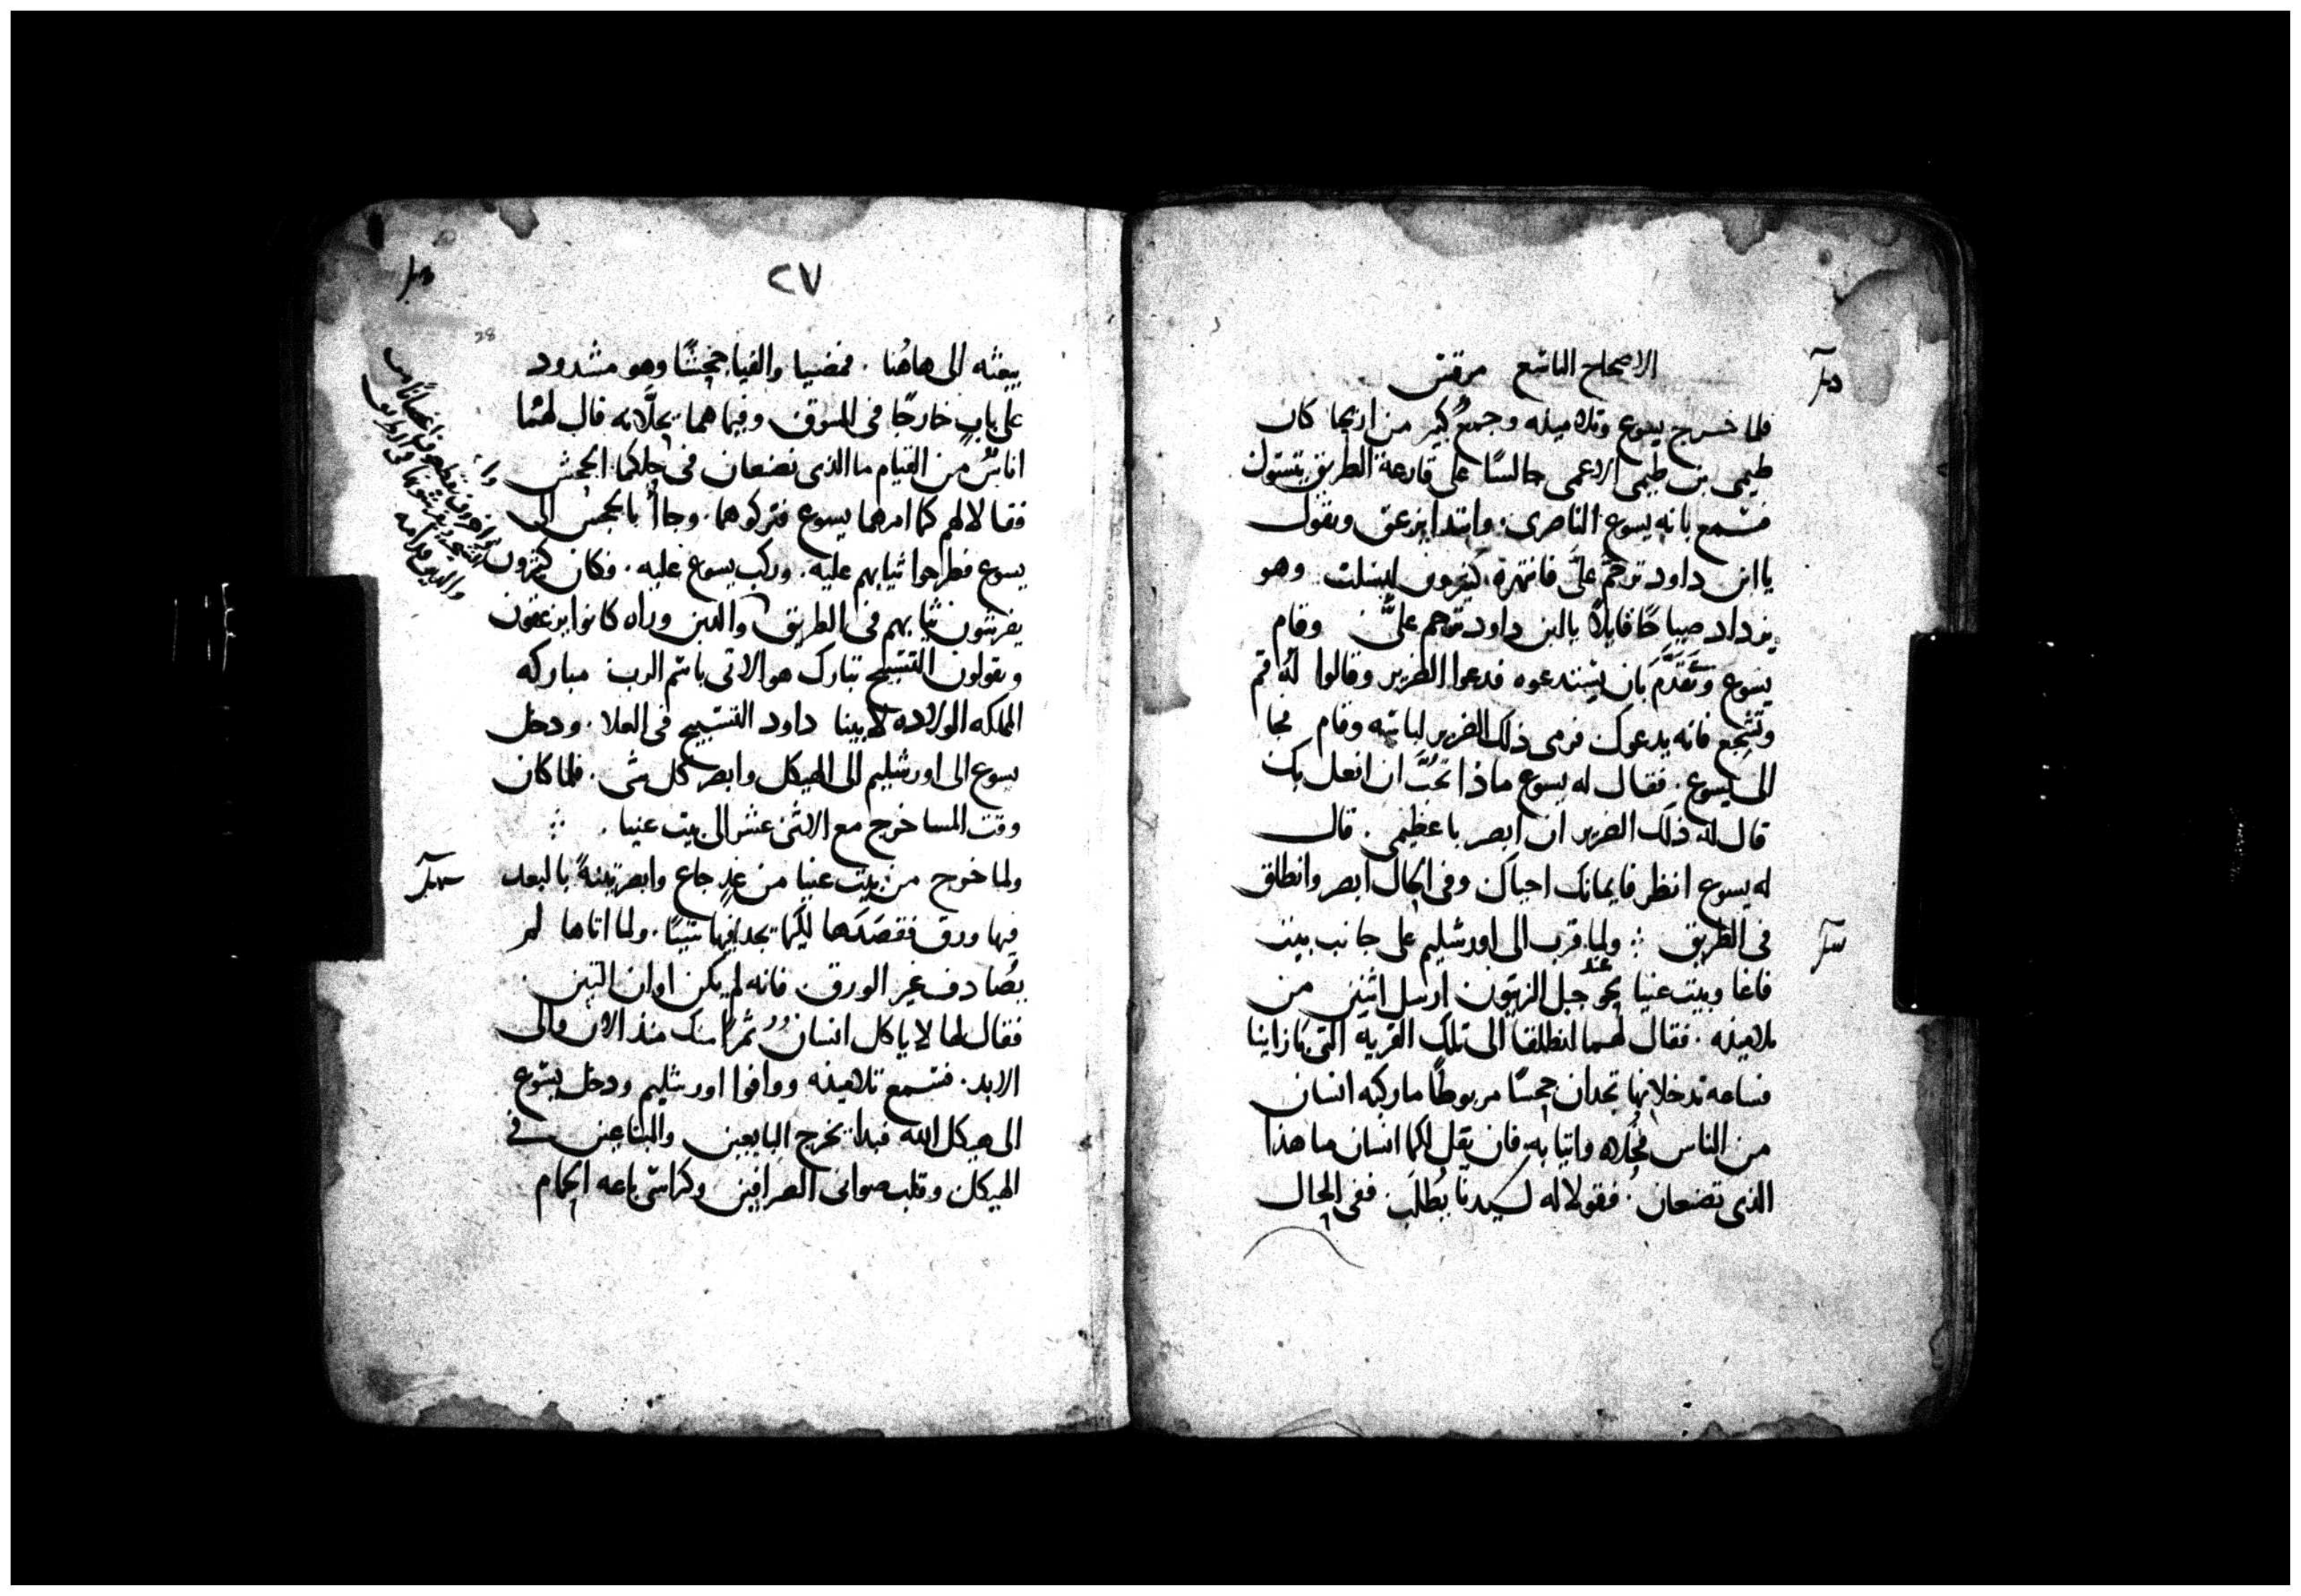 الاصحاح التاسع مرقس
فلما خرج يسوع وتلاميذه وجمع كبير من اريحا كان
طيمى بن طيمى الاعمى جالسًا على قارعة الطريق يتسول
فسمع بانه يسوع الناصرى وابتدا يزعق ويقول
يا ابن داود ترحم علىَّ فانتهره كثيرون ليسكت وهو
يزداد صياحًا قايلًا يا ابن داود ترحم علىَّ وقام
يسوع وتقدَّم بان يستدعوه فدعوا الضرير وقالوا لهُ قم
وتشجع فانه يدعوك فرمى ذلك الضرير لباسه وقام فجا
الى يسوع. فقال له يسوع ماذا تحبُّ ان افعل بك
قال له ذلك الضرير ان ابصر يا عظيمى. قال
له يسوع انظر فايمانك احياك وفى الحال ابصر وانطلق
فى الطريق ⁘ ولما قرب الى اورشليم على جانب بيت
فاغا وبيت عنيا نحو عند جبل الزيتون ارسل اثنين من
تلاميذه. فقال لهما انطلقا الى تلك القرية التى بازاينا
فساعه تدخلانها تجدان جحشًا مربوطًا ما ركبه انسان
من الناس فحُلاه واتيا به فان يقل لكما انسان ما هذا
الذى تصنعان. فقولا له لسيدنا يُطلَب. ففى الحال
٢٧
28
يبعثه الى هاهُنا. فمضيا والفيا جحشًا وهو مشدود
على باب خارجًا فى السوق وفيما هما يحلَّانه قال لهما
اناسٌ من القيام ما الذى تصنعان فى حلكما الجحش
فقالا لهم كما امرهما يسوع فتركوهما. وجاأُ بالجحش الى
يسوع فطرحوا ثيابهم عليه. وركب يسوع عليه. فكان كثيرون
يفرشون ثيابهم فى الطريق والذين وراه كانوا يزعقون
ويقولون التسبيح تبارك هو الاتى باسم الرب مباركه
المملكه الوارده لابينا داود التسبيح فى العلا. ودخل
يسوع الى اورشليم الى الهيكل وابصر كل شى. فلما كان
وقت المسا خرج مع الاثنى عشر الى بيت عنيا. ⁘
ولما خرج من بيت عنيا من غدٍ جاع وابصر تينةً بالبعد
فيها ورق فقصَدَها لكيما يجد فيها شيئًا. ولما اتاها لم
يُصادف غير الورق فانه لم يكن اوان التين
فقال لها لا ياكل انسان ثمرًا منك منذ الان والى
الابد. فسمع تلاميذه ووافوا اورشليم ودخل يسوع
الى هيكل الله فبدا يخرج البايعين والمتاعين فى
الهيكل وقلب صوانى الصرافين وكراسى باعه الحمام